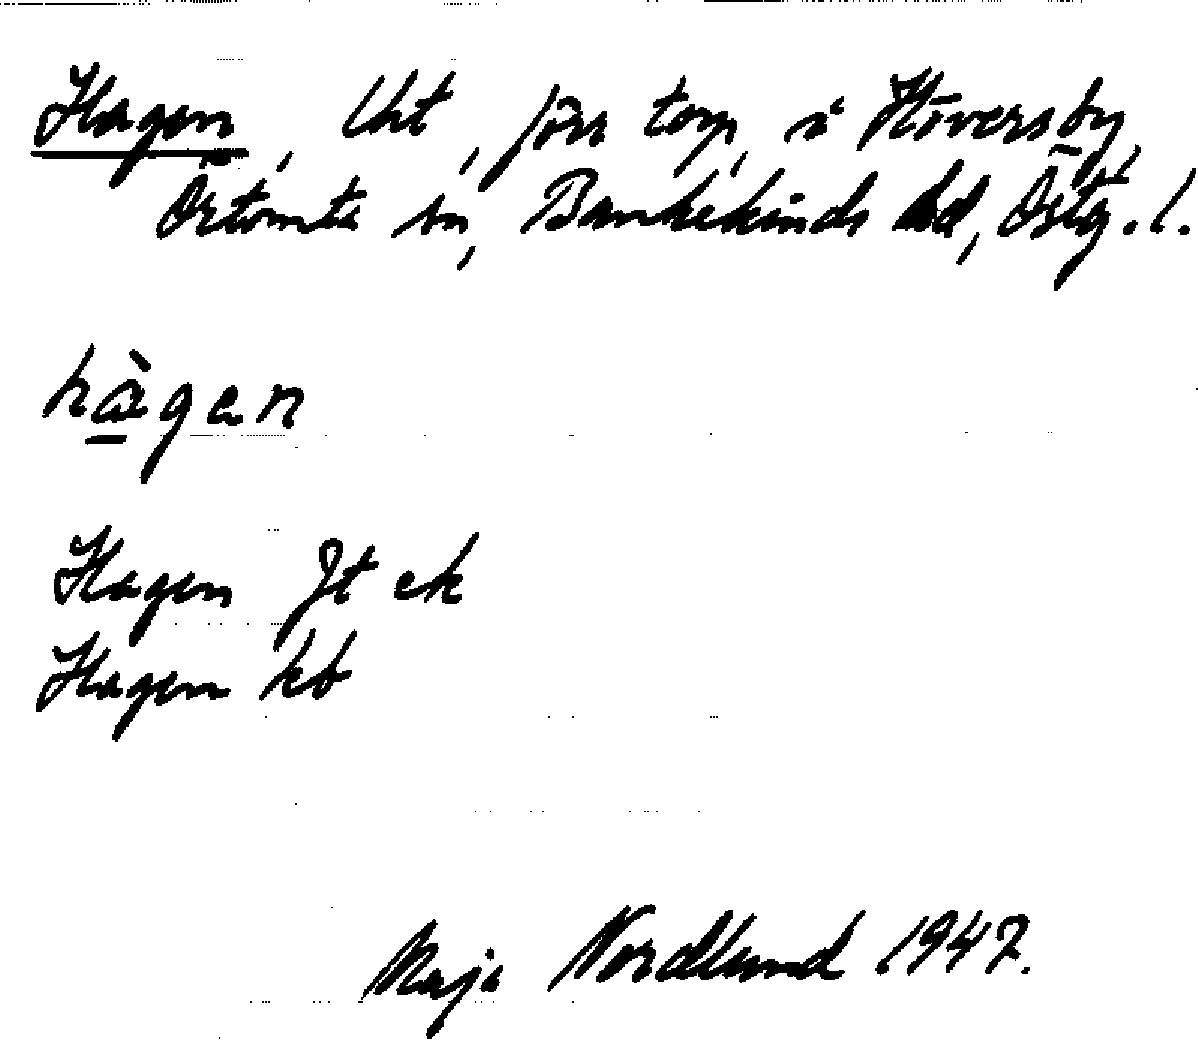 Hagen, Uht, förr torp, i Höversby,
Örtomta sn, Bankekinds hd, Östg. l.
hàgen
Hagen Jt ek
Hagen kb
Maja Nordlund 1947.